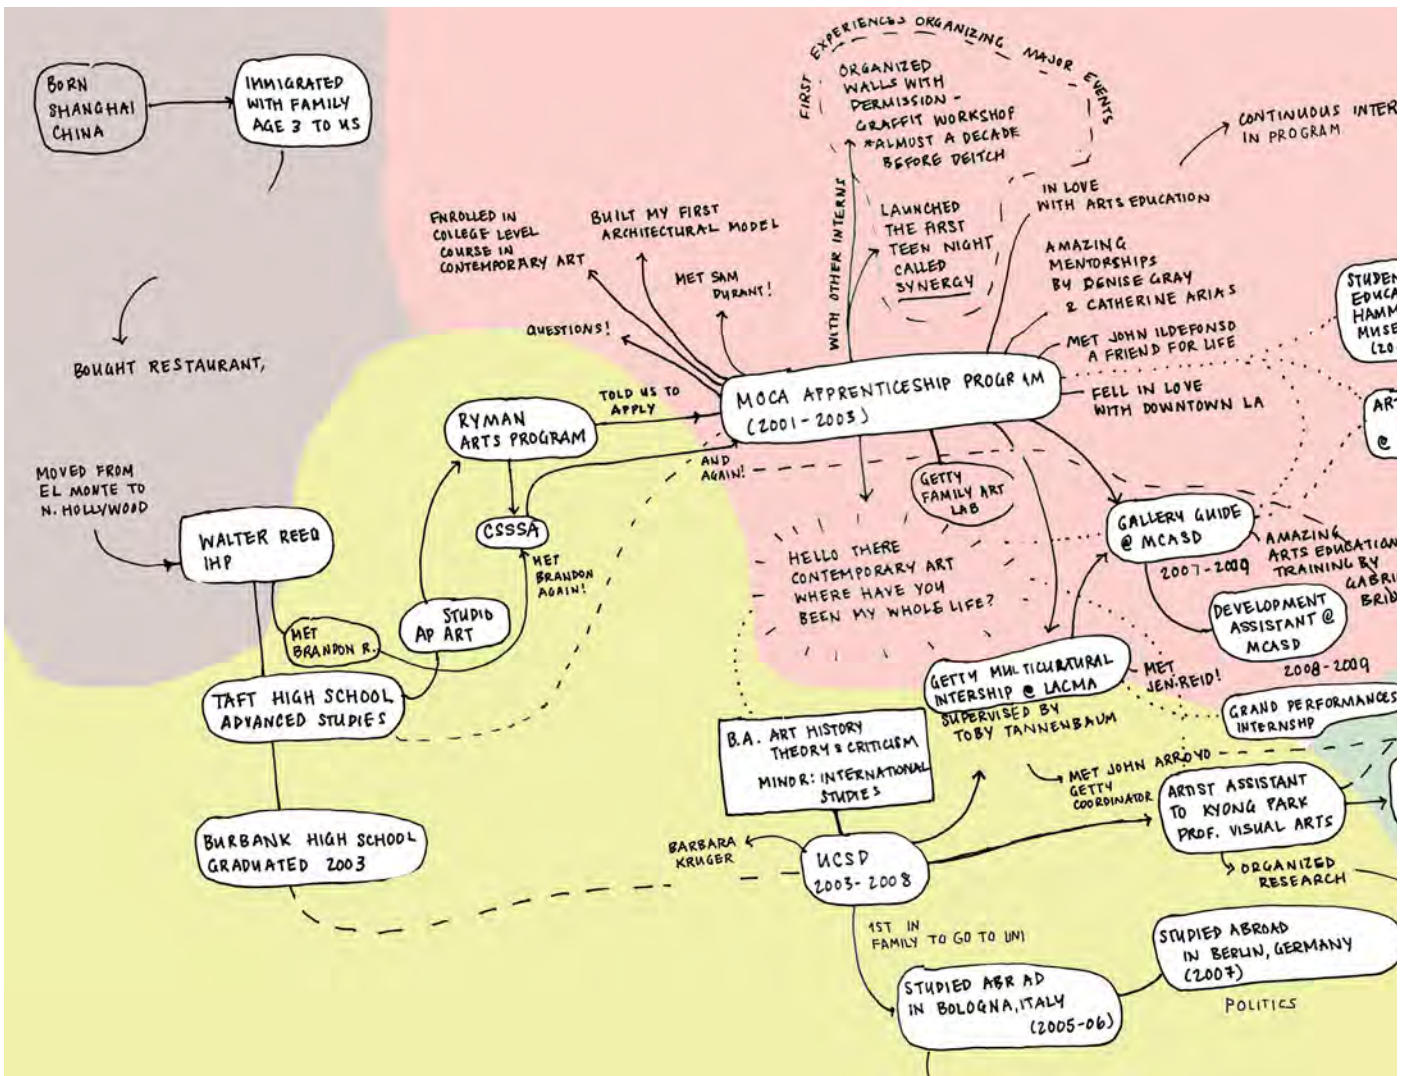 BORN
SHANGHAI
CHINA
IMMIGRATED
WITH FAMILY
AGE 3 TO US
BOUGHT RESTAURANT,
MOVED FROM
EL MONTE TO
N. HOLLYWOOD
WALTER REED
IHP
MET
BRANDON R.
TAFT HIGH SCHOOL
ADVANCED STUDIES
BURBANK HIGH SCHOOL
GRADUATED 2003
STUDIO
AP ART
RYMAN
ARTS PROGRAM
CSSSA
MET
BRANDON
AGAIN!
TOLD US TO
APPLY
AND
AGAIN!
ENROLLED IN
COLLEGE LEVEL
COURSE IN
CONTEMPORARY ART
BUILT MY FIRST
ARCHITECTURAL MODEL
MET SAM
DURANT!
QUESTIONS!
MOCA APPRENTICESHIP PROGRAM
(2001-2003)
WITH OTHER INTERNS
FIRST EXPERIENCES ORGANIZING MAJOR EVENTS
ORGANIZED
WALLS WITH
PERMISSION -
GRAFFIT WORKSHOP
*ALMOST A DECADE
BEFORE DEITCH
LAUNCHED
THE FIRST
TEEN NIGHT
CALLED
SYNERGY
IN LOVE
WITH ARTS EDUCATION
CONTINUOUS INTER
IN PROGRAM
AMAZING
MENTORSHIPS
BY DENISE GRAY
& CATHERINE ARIAS
MET JOHN ILDEFONSO
A FRIEND FOR LIFE
FELL IN LOVE
WITH DOWNTOWN LA
STUDEN
EDUCA
HAMM
MUSE
(20
AR
@
GETTY
FAMILY ART
LAB
HELLO THERE
CONTEMPORARY ART
WHERE HAVE YOU
BEEN MY WHOLE LIFE?
GALLERY GUIDE
@ MCASD
2007-2009
AMAZING
ARTS EDUCATION
TRAINING BY
GABRI
BRID
DEVELOPMENT
ASSISTANT @
MCASD
2008-2009
GETTY MULTICULTURAL
INTERSHIP @ LACMA
SUPERVISED BY
TOBY TANNENBAUM
MET
JEN·REID!
GRAND PERFORMANCES
INTERNSHP
MET JOHN ARROYO
GETTY
COORDINATOR
B.A. ART HISTORY
THEORY & CRITICISM
MINOR: INTERNATIONAL
STUDIES
BARBARA
KRUGER
UCSD
2003-2008
ARTIST ASSISTANT
TO KYONG PARK
PROF. VISUAL ARTS
ORGANIZED
RESEARCH
1ST IN
FAMILY TO GO TO UNI
STUDIED ABR AD
IN BOLOGNA, ITALY
(2005-06)
STUDIED ABROAD
IN BERLIN, GERMANY
(2007)
POLITICS